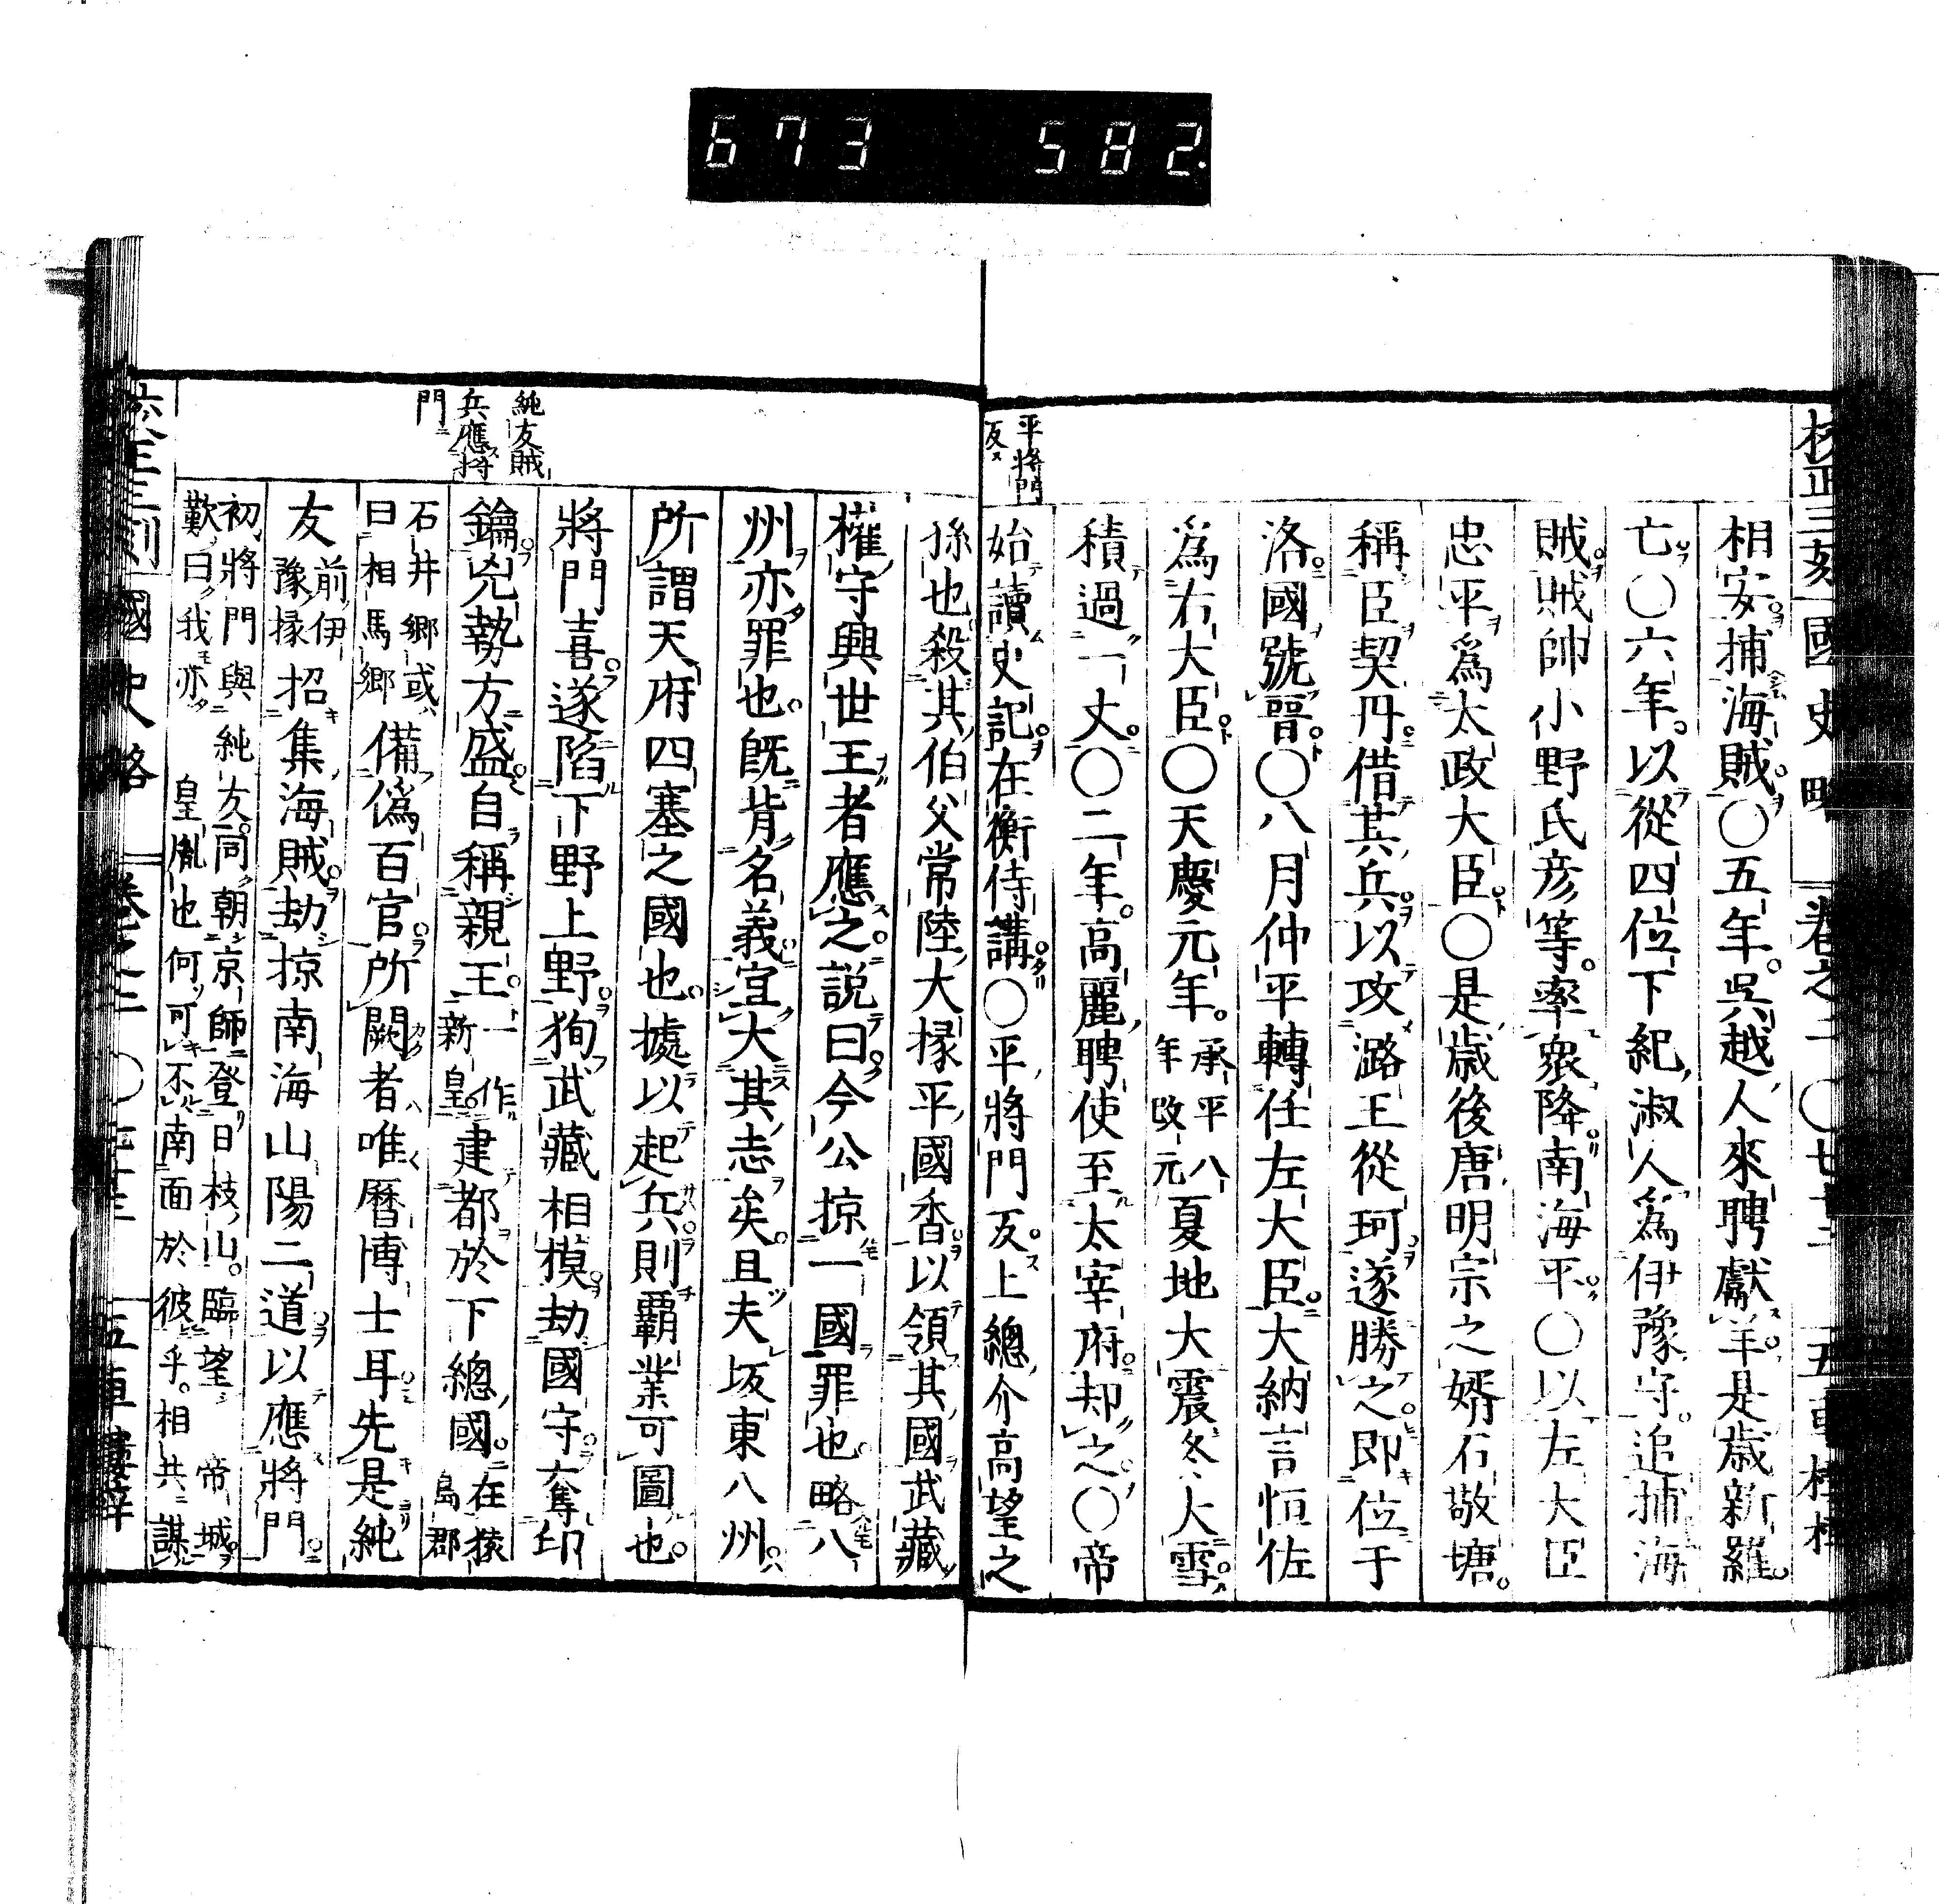 673 582
校正三刻 國史略 卷之二 〇
相安捕海賊〇五年。吳越人來聘獻羊是歲新羅。
亡〇六年。以從四位下紀淑人爲伊豫守。追捕海
賊。賊帥小野氏彥等。率衆降南海平〇以左大臣
忠平爲太政大臣〇是歲後唐明宗之婿石敬塘。
稱臣契丹借其兵以攻潞王從珂遂勝之即位于
洛國號晉〇八月仲平轉任左大臣大納言恒佐
爲右大臣〇天慶元年。承平八年改元夏地大震冬大雪
積過一丈〇二年。高麗聘使至太宰府却之〇帝
始讀史記在衡侍講〇平將門反上總介高望之
平將門
反ス
孫也殺其伯父常陸大掾平國香以領其國武藏
權守興世王者應之。說曰今公掠一國罪也略八
州亦罪也。旣背名義宜大其志矣。且夫坂東八州
所謂天府四塞之國也。據以起兵則覇業可圖也。
將門喜遂陷下野上野狥武藏相摸劫國守奪印
鑰兇勢方盛自稱親王一作新皇建都於下總國在猿島郡
石井鄉或曰相馬鄉備僞百官所闕者唯曆博士耳先是純
友前伊豫掾招集海賊劫掠南海山陽二道以應將門
初將門與純友同朝京師登日枝山。臨望帝城
歎曰我亦皇胤也何可不南面於彼乎。相共謀
純友賊
兵應將
門
國史略 卷之二 〇 五車樓梓